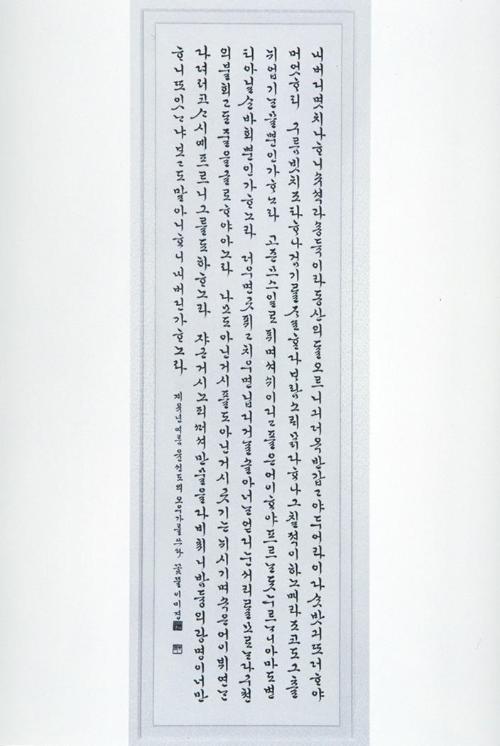 내버디몃치나ᄒᆞ니슈셕과숑듁이라동산의ᄃᆞᆯ오르니긔더옥반갑고야두어라이다ᄉᆞᆺ밧긔또더ᄒᆞ야
머엇ᄒᆞ리 구룸빗치조타ᄒᆞ나검기ᄅᆞᆯᄌᆞ로ᄒᆞᆫ다ᄇᆞ람소ᄅᆡᄆᆞᆰ다ᄒᆞ나그칠적이하노매라조코도그츨
뉘업기ᄂᆞᆫ믈뿐인가ᄒᆞ노라 고즌므스일로퓌며셔쉬이디고플은어이ᄒᆞ야프르ᄂᆞᆫᄃᆞᆺ누르ᄂᆞ니아마도변
티아닐ᄉᆞᆫ바회뿐인가ᄒᆞ노라 더우면곳퓌고치우면닙디거ᄂᆞᆯ솔아너ᄂᆞᆫ얻디눈서리ᄅᆞᆯ모ᄅᆞᄂᆞᆫ다구쳔
의블희고ᄃᆞᆫ줄을글로ᄒᆞ야아노라 나모도아닌거시플도아닌거시곳기ᄂᆞᆫ뉘시기며속은어이뷔연ᄂᆞᆫ
다뎌러코ᄉᆞ시예프르니그를됴하ᄒᆞ노라 쟈근거시노피떠셔만믈을다비취니밤듕의광명이너만
ᄒᆞ니또잇ᄂᆞ냐보고도말아니ᄒᆞ니내버딘가ᄒᆞ노라
윤선도의 오우가를쓰다 꽃뜰이미경